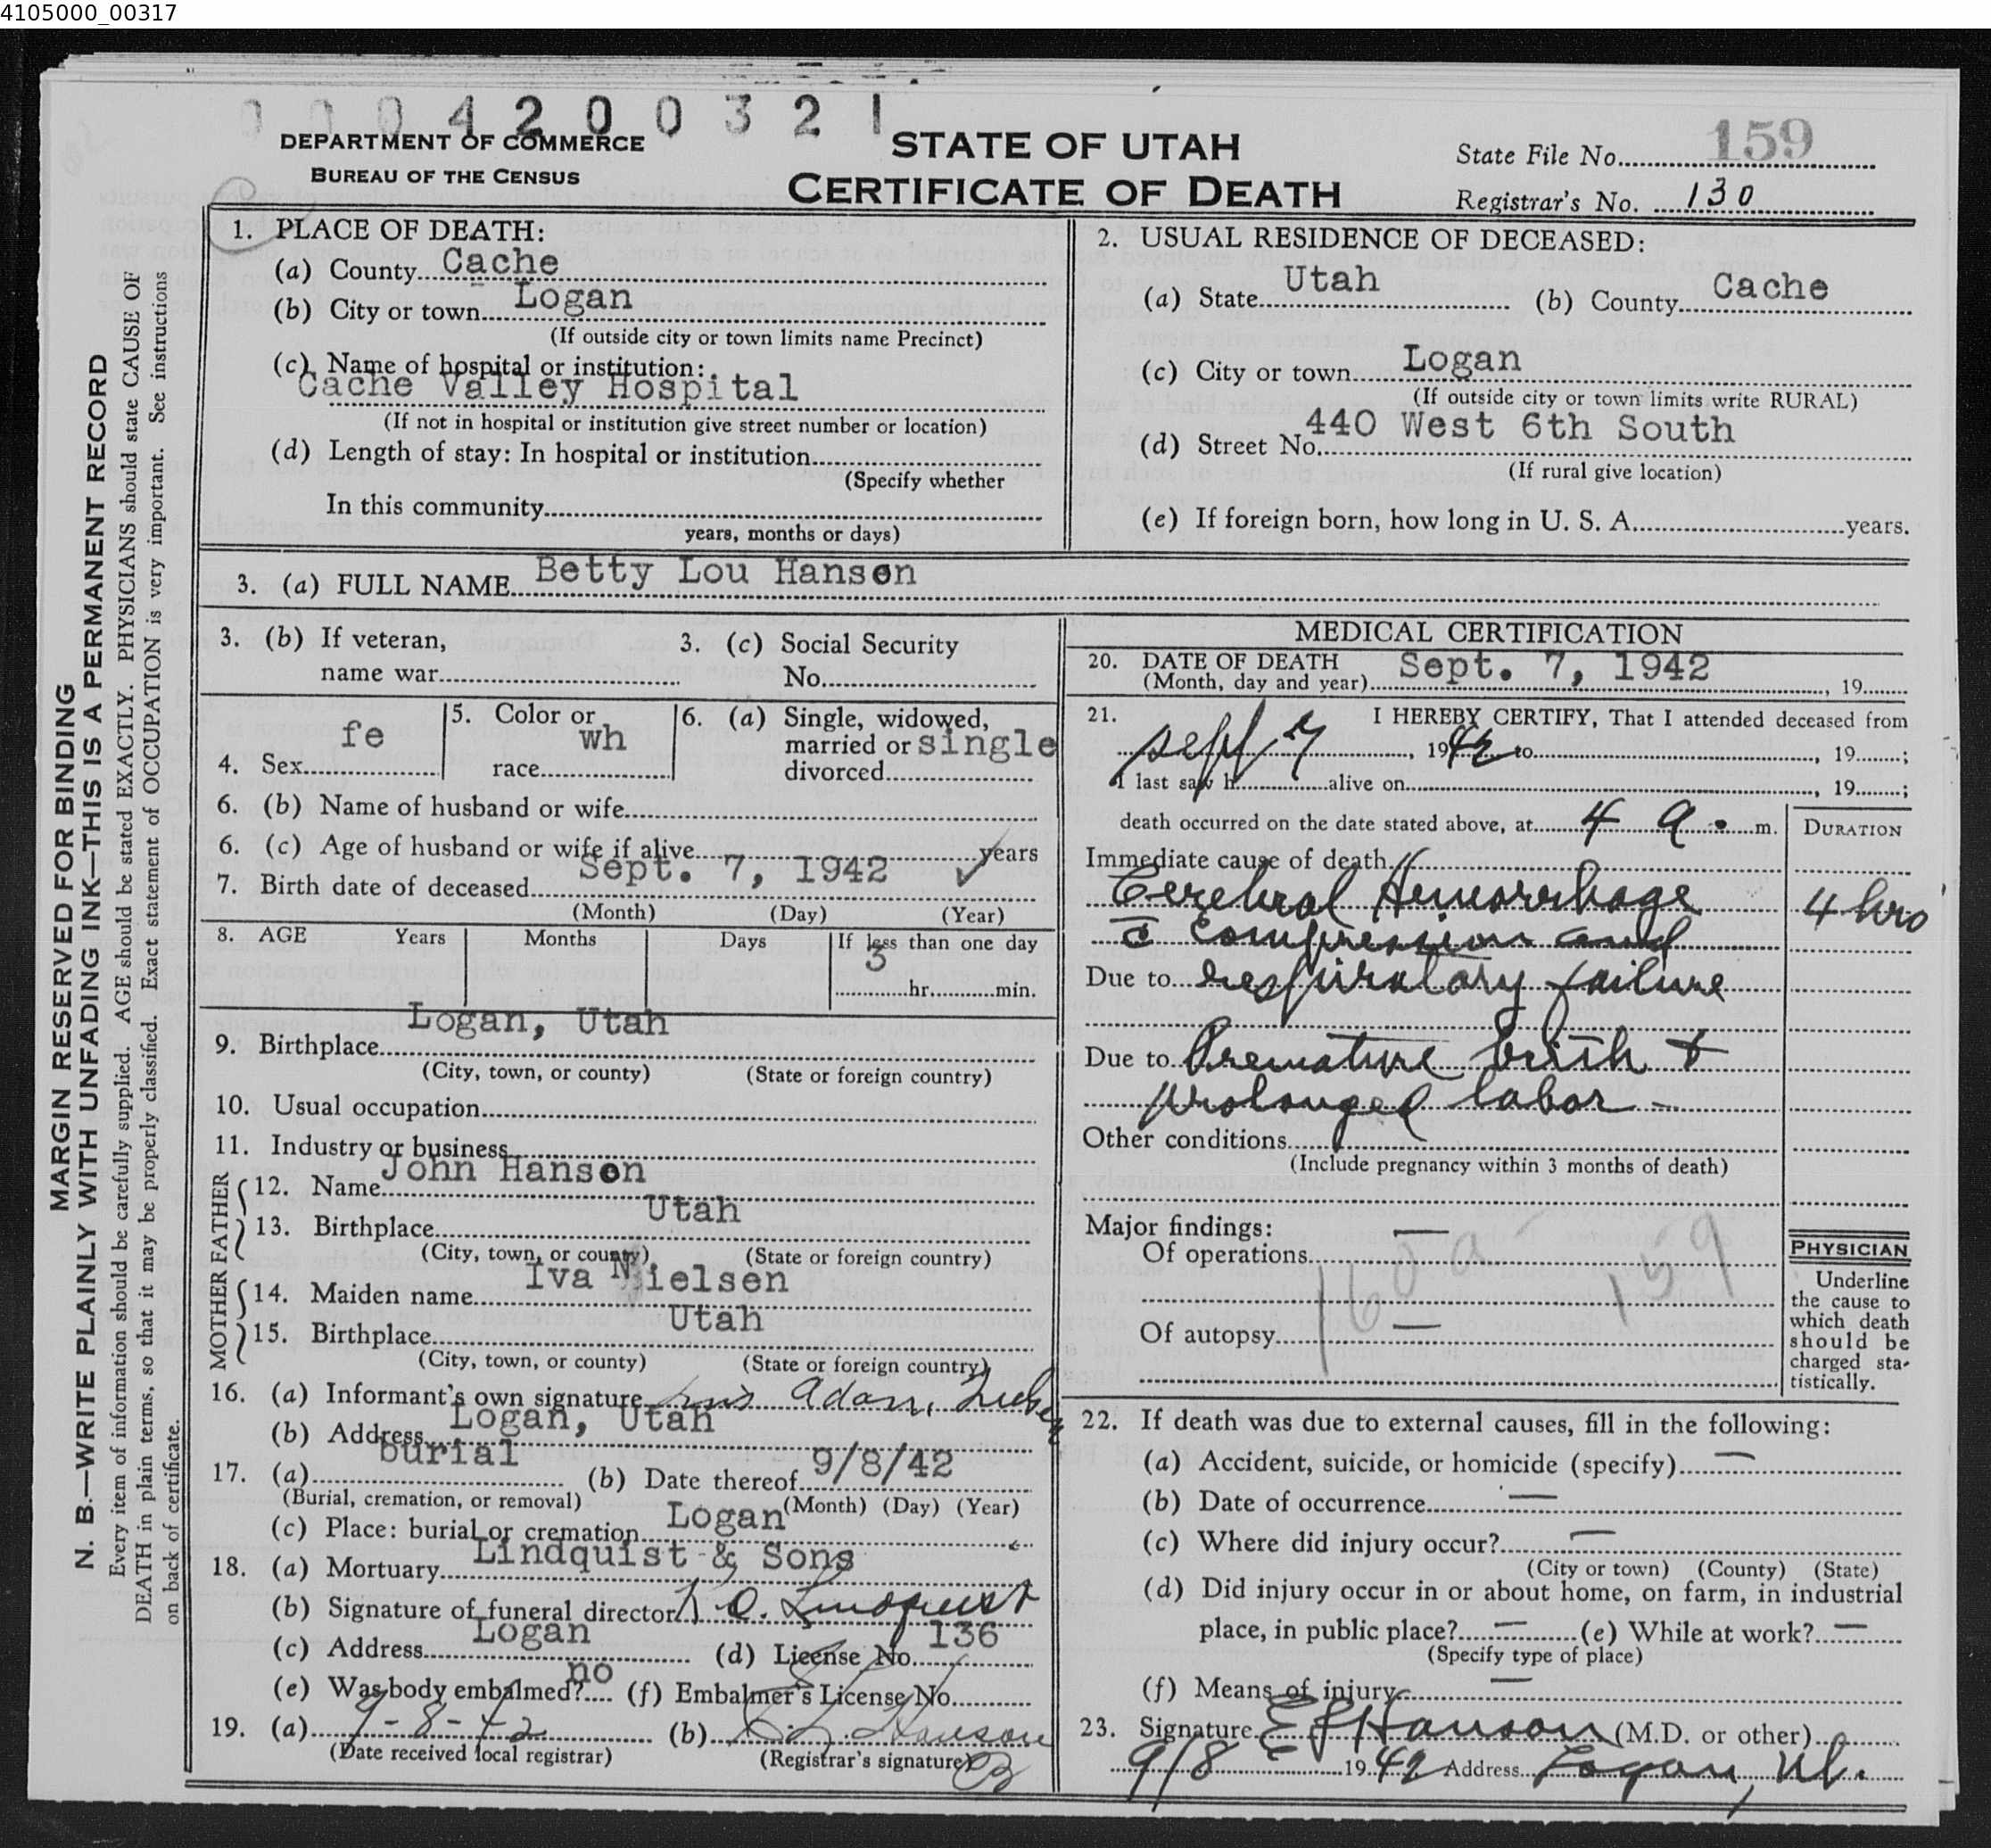 4105000_00317
0004200321
DEPARTMENT OF COMMERCE
BUREAU OF THE CENSUS
STATE OF UTAH
CERTIFICATE OF DEATH
State File No. 159
Registrar's No. 130
MARGIN RESERVED FOR BINDING
N. B.—WRITE PLAINLY WITH UNFADING INK—THIS IS A PERMANENT RECORD
Every item of information should be carefully supplied. AGE should be stated EXACTLY. PHYSICIANS should state CAUSE OF
DEATH in plain terms, so that it may be properly classified. Exact statement of OCCUPATION is very important. See instructions
on back of certificate.
1. PLACE OF DEATH:
(a) County Cache
(b) City or town Logan
(If outside city or town limits name Precinct)
(c) Name of hospital or institution:
Cache Valley Hospital
(If not in hospital or institution give street number or location)
(d) Length of stay: In hospital or institution
(Specify whether
In this community
years, months or days)
2. USUAL RESIDENCE OF DECEASED:
(a) State Utah (b) County Cache
(c) City or town Logan
(If outside city or town limits write RURAL)
(d) Street No. 440 West 6th South
(If rural give location)
(e) If foreign born, how long in U. S. A. years.
3. (a) FULL NAME Betty Lou Hansen
3. (b) If veteran, 3. (c) Social Security
name war No.
4. Sex fe 5. Color or race wh 6. (a) Single, widowed, married or divorced single
6. (b) Name of husband or wife
6. (c) Age of husband or wife if alive years
7. Birth date of deceased Sept. 7, 1942 ✓
(Month) (Day) (Year)
8. AGE Years Months Days If less than one day
3 hr. min.
9. Birthplace Logan, Utah
(City, town, or county) (State or foreign country)
10. Usual occupation
11. Industry or business
FATHER
12. Name John Hansen
13. Birthplace Utah
(City, town, or county) (State or foreign country)
MOTHER
14. Maiden name Iva Nielsen
15. Birthplace Utah
(City, town, or county) (State or foreign country)
16. (a) Informant's own signature Mrs Adam
(b) Address Logan, Utah
17. (a) burial (b) Date thereof 9/8/42
(Burial, cremation, or removal) (Month) (Day) (Year)
(c) Place: burial or cremation Logan
18. (a) Mortuary Lindquist & Sons
(b) Signature of funeral director O. Lindquist
(c) Address Logan (d) License No. 136
(e) Was body embalmed? no (f) Embalmer's License No.
19. (a) 9-8-42 (b) Hanson
(Date received local registrar) (Registrar's signature)
MEDICAL CERTIFICATION
20. DATE OF DEATH Sept. 7, 1942
(Month, day and year) , 19
21. I HEREBY CERTIFY, That I attended deceased from
Sept 7, 1942 to , 19 ;
I last saw h alive on , 19 ;
death occurred on the date stated above, at 4 a. m.
DURATION
Immediate cause of death
Cerebral Hemorrhage 4 hrs
c̄ compression and
Due to respiratory failure
Due to Premature birth +
prolonged labor -
Other conditions
(Include pregnancy within 3 months of death)
Major findings:
Of operations —
160a 159
Of autopsy —
PHYSICIAN
Underline
the cause to
which death
should be
charged sta-
tistically.
22. If death was due to external causes, fill in the following:
(a) Accident, suicide, or homicide (specify) —
(b) Date of occurrence —
(c) Where did injury occur? —
(City or town) (County) (State)
(d) Did injury occur in or about home, on farm, in industrial
place, in public place? — (e) While at work? —
(Specify type of place)
(f) Means of injury —
23. Signature E J Hanson (M.D. or other)
9/8 1942 Address Logan, Ut.